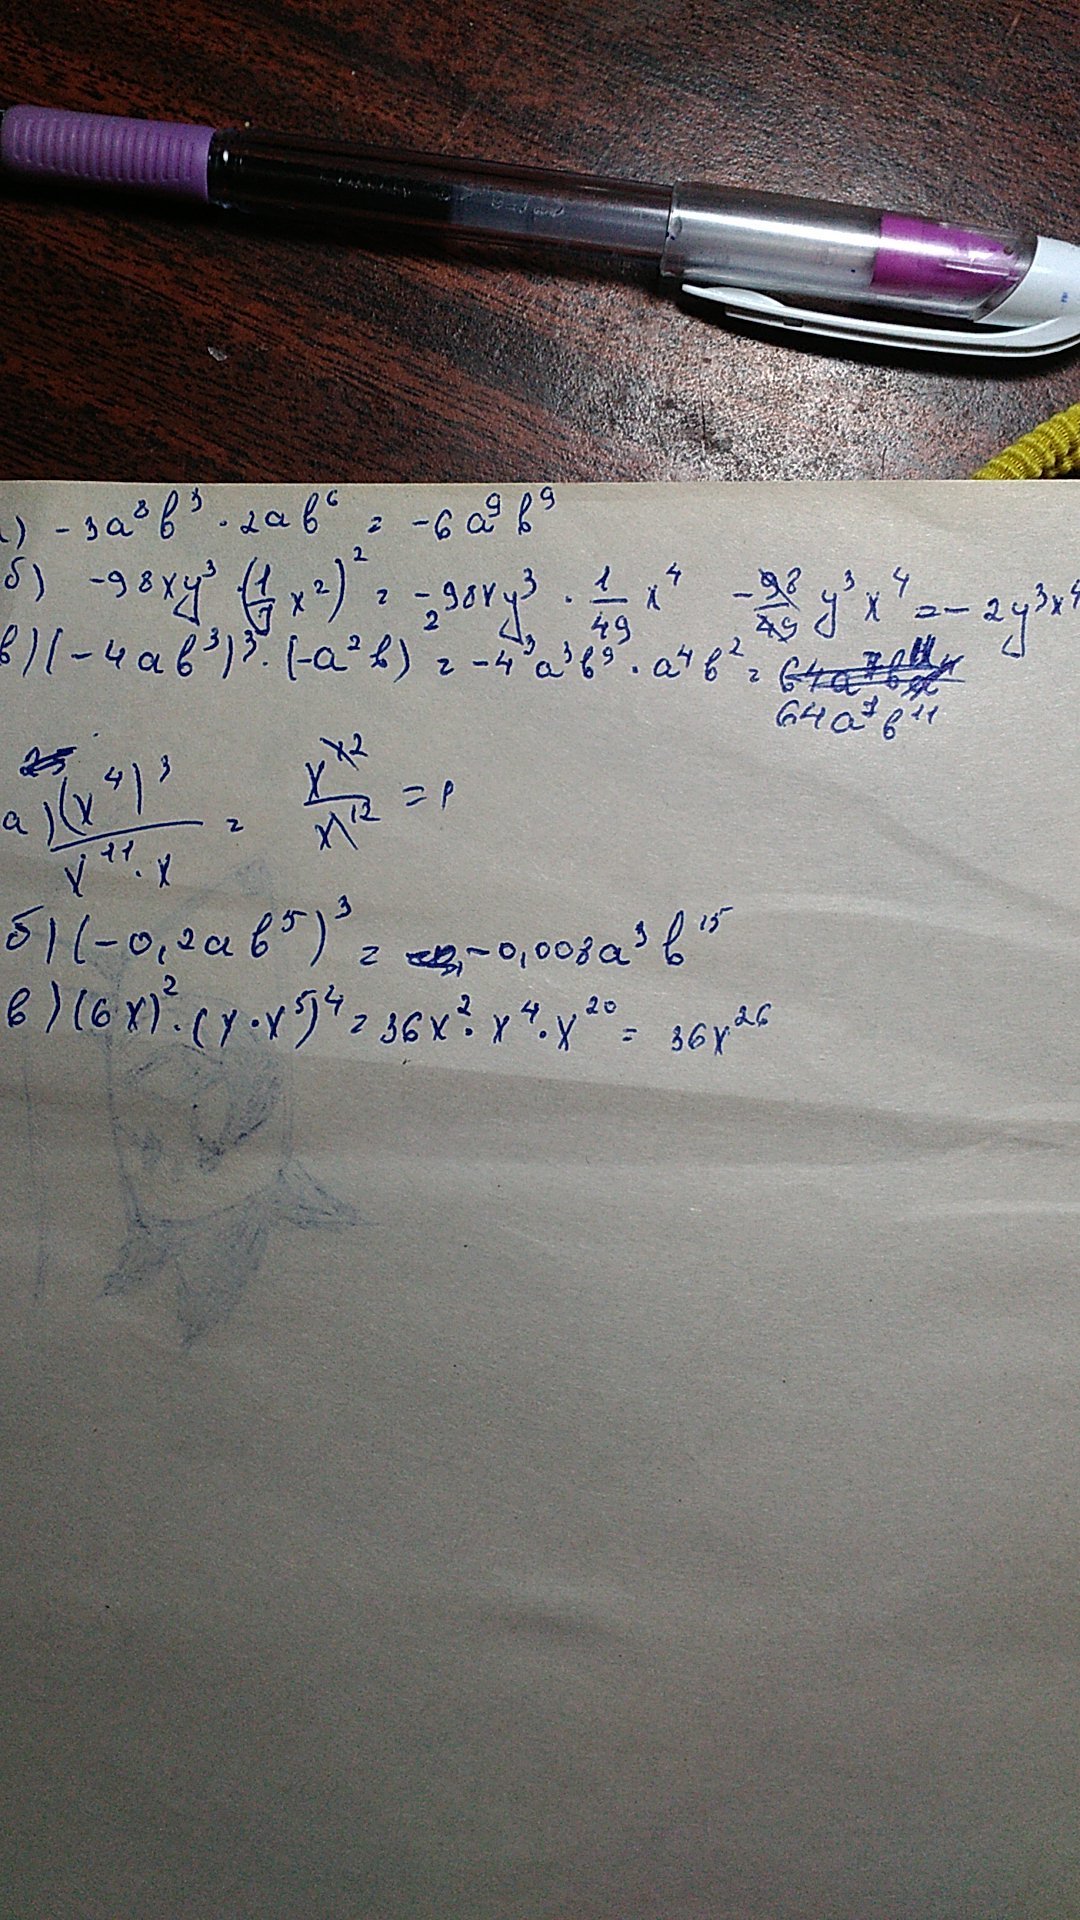 а) -3a⁸b³ · 2ab⁶ = -6a⁹b⁹
б) -98xy³ · (1/7 x²)² = -98xy³ · 1/49 x⁴ -98/49 y³x⁴ = -2y³x⁴
в) (-4ab³)³ · (-a²b) = -4³a³b⁹ · a⁴b² =
64a⁷b¹¹
а) (x⁴)³/(x¹¹ · x) = x¹²/x¹² = 1
б) (-0,2ab⁵)³ = -0,008a³b¹⁵
в) (6x)² · (x · x⁵)⁴ = 36x² · x⁴ · x²⁰ = 36x²⁶